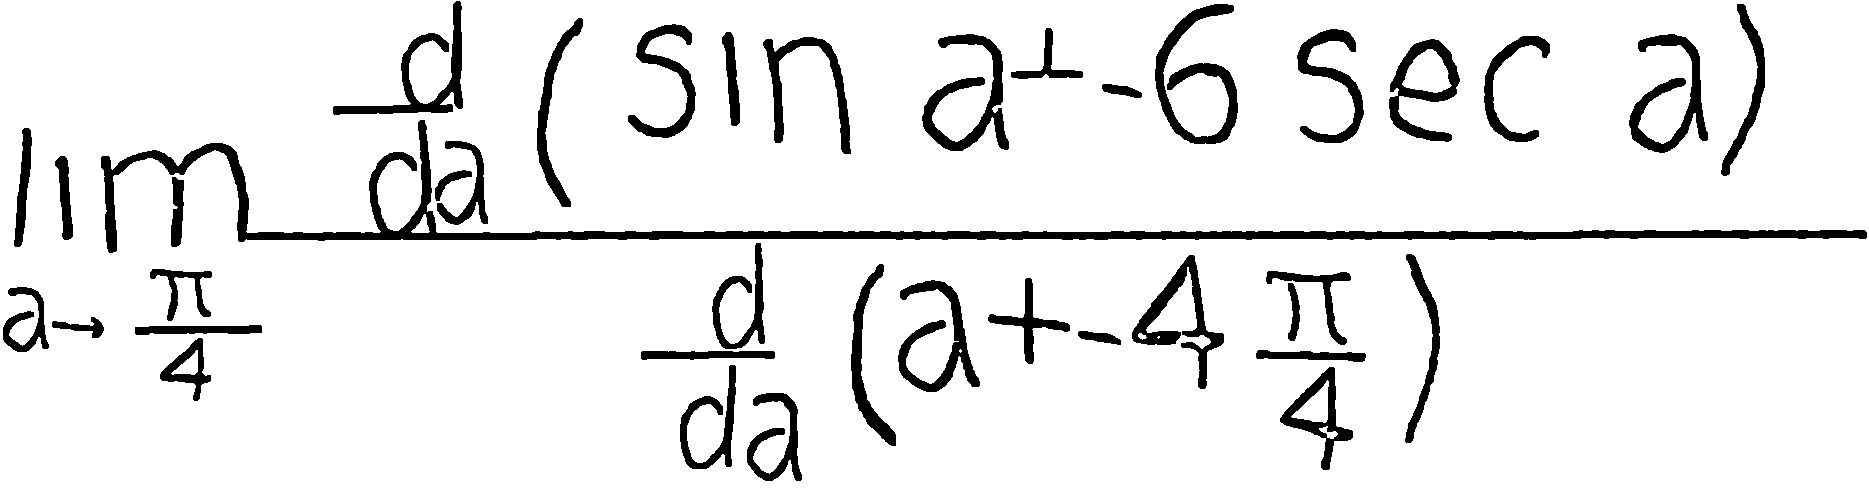 \lim_{a \to \frac{\pi}{4}} \frac{\frac{d}{da}(\sin a + -6 \sec a)}{\frac{d}{da}(a + -4 \frac{\pi}{4})}